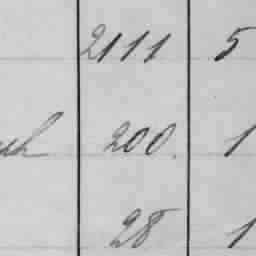 2111 5
200. 1
28 1